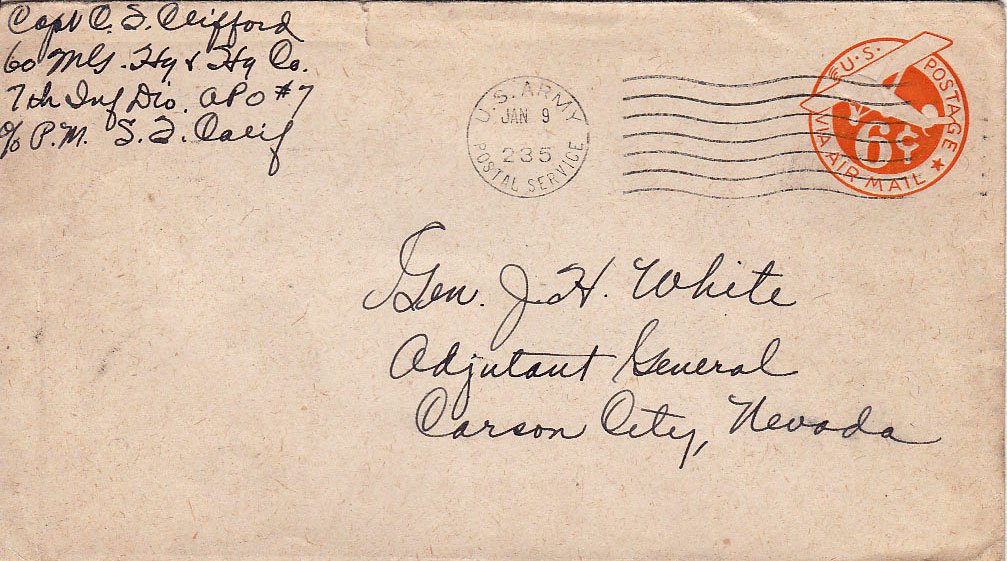 Capt C. S. Clifford
60 MG. Hq & Hq Co.
7th Inf Div. APO #7
c/o P.M. S. F. Calif
U.S. ARMY
JAN 9
235
POSTAL SERVICE
U.S. POSTAGE
6¢
VIA AIR MAIL
Gen. J. H. White
Adjutant General
Carson City, Nevada